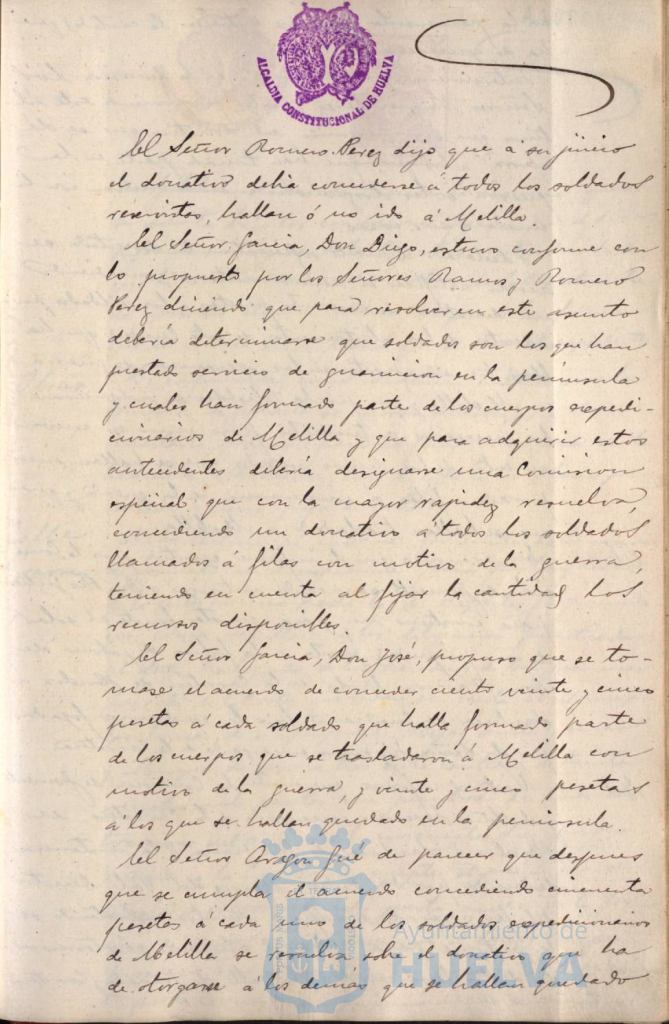 ALCALDIA CONSTITUCIONAL DE HUELVA
El Señor Romero Perez dijo que á su juicio
el donativo debia concederse á todos los soldados
reservistas, hallan ó no ido á Melilla.
El Señor Garcia, Don Diego, estuvo conforme con
lo propuesto por los Señores Ramos y Romero
Perez diciendo que para resolver en este asunto
deberia determinarse que soldados son los que han
prestado servicio de guarnicion en la peninsula
y cuales han formado parte de los cuerpos expedi-
cionarios de Melilla y que para adquirir estos
antecedentes deberia designarse una Comision
espeial que con la mayor rapidez resuelva,
concediendo un donativo á todos los soldados
llamados á filas con motivo de la guerra,
teniendo en cuenta al fijar la cantidad los
recursos disponibles.
El Señor Garcia, Don José, propuso que se to-
mase el acuerdo de conceder ciento veinte y cinco
pesetas á cada soldado que halla formado parte
de los cuerpos que se trasladaron á Melilla con
motivo de la guerra, y veinte y cinco pesetas
á los que se hallan quedado en la peninsula.
El Señor Aragon fué de parecer que despues
que se cumpla el acuerdo concediendo cincuenta
pesetas á cada uno de los soldados expedicionarios
de Melilla se resuelva sobre el donativo que ha
de otorgarse á los demás que se hallan quedado
Ayuntamiento de
HUELVA